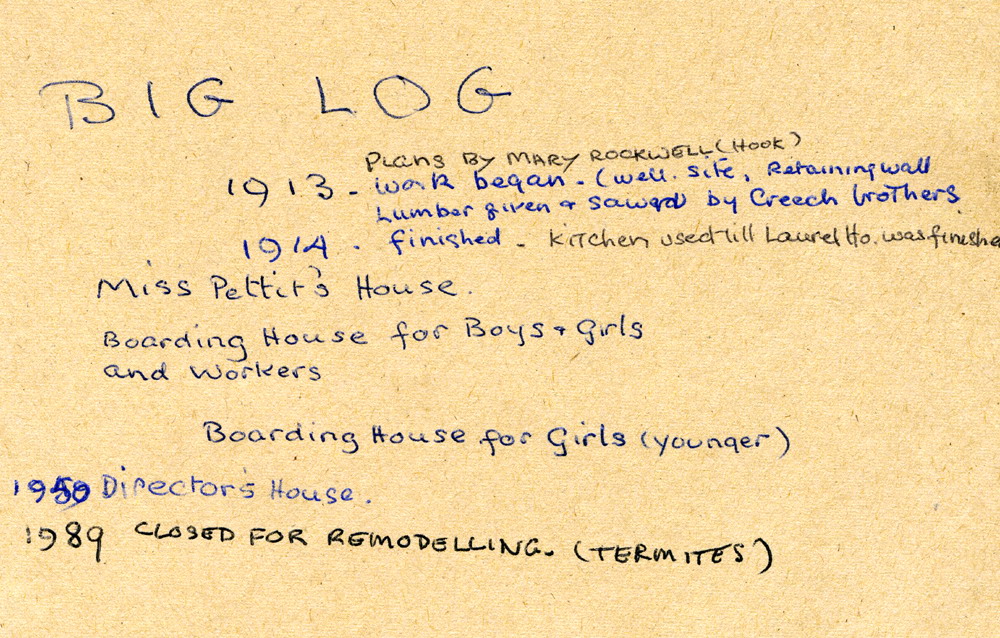 BIG LOG
Plans BY MARY ROCKWELL (HOOK)
1913 - work began - (well. site, Retaining wall
Lumber given + sawed by Creech brothers
1914 - finished - Kitchen used till Laurel Ho. was finishe
Miss Pettit's House.
Boarding House for Boys + Girls
and workers
Boarding House for Girls (younger)
Director's House.
1989 CLOSED FOR REMODELLING. (TERMITES)